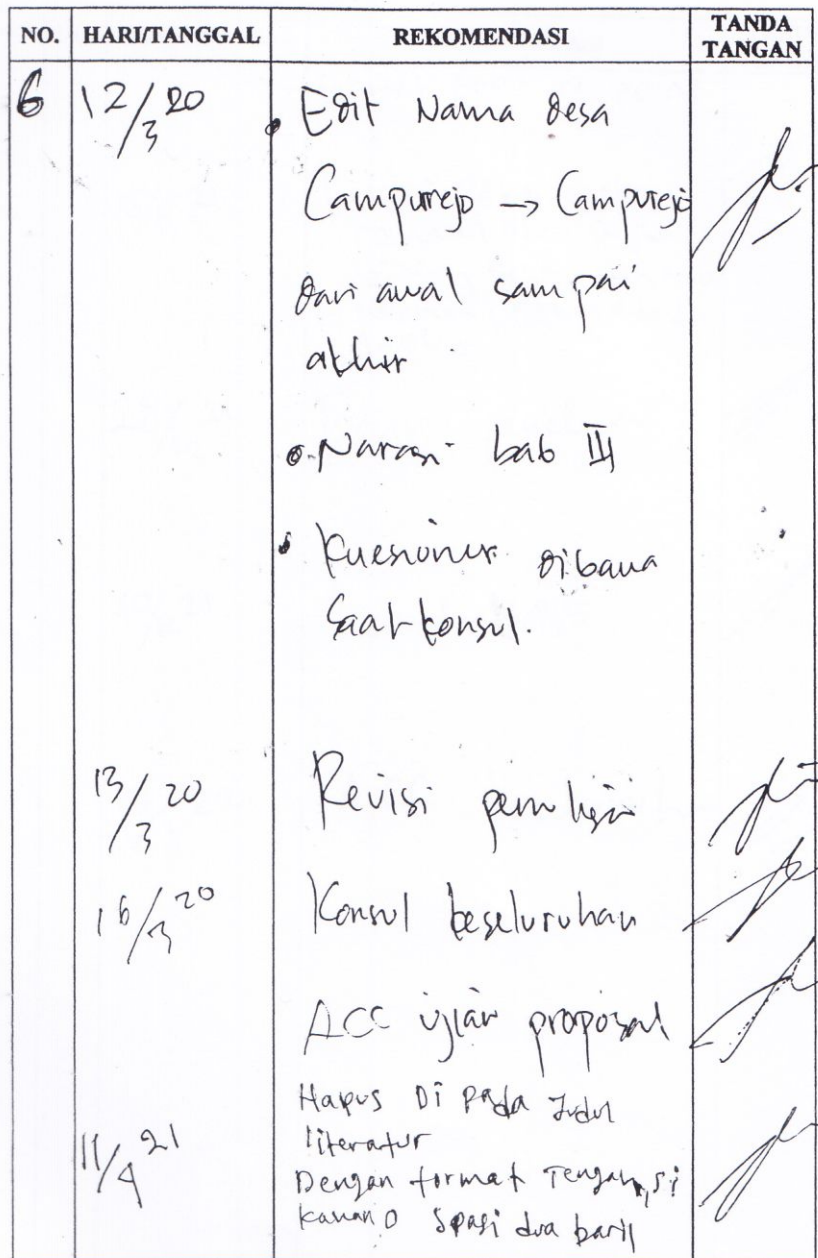 NO. HARI/TANGGAL REKOMENDASI TANDA TANGAN
6 12/3 20 • Edit Nama desa
Campurrejo → Campurejo
dari awal sampai
akhir
• Narasi bab III
• Kuesioner dibawa
Saat konsul.
13/3 20 Revisi penulisan
16/3 20 Konsul keseluruhan
ACC ujian proposal
Hapus Di Pada Judul
literatur
11/4 21 Dengan format Tengah,
kanan 0 Spasi dua baris